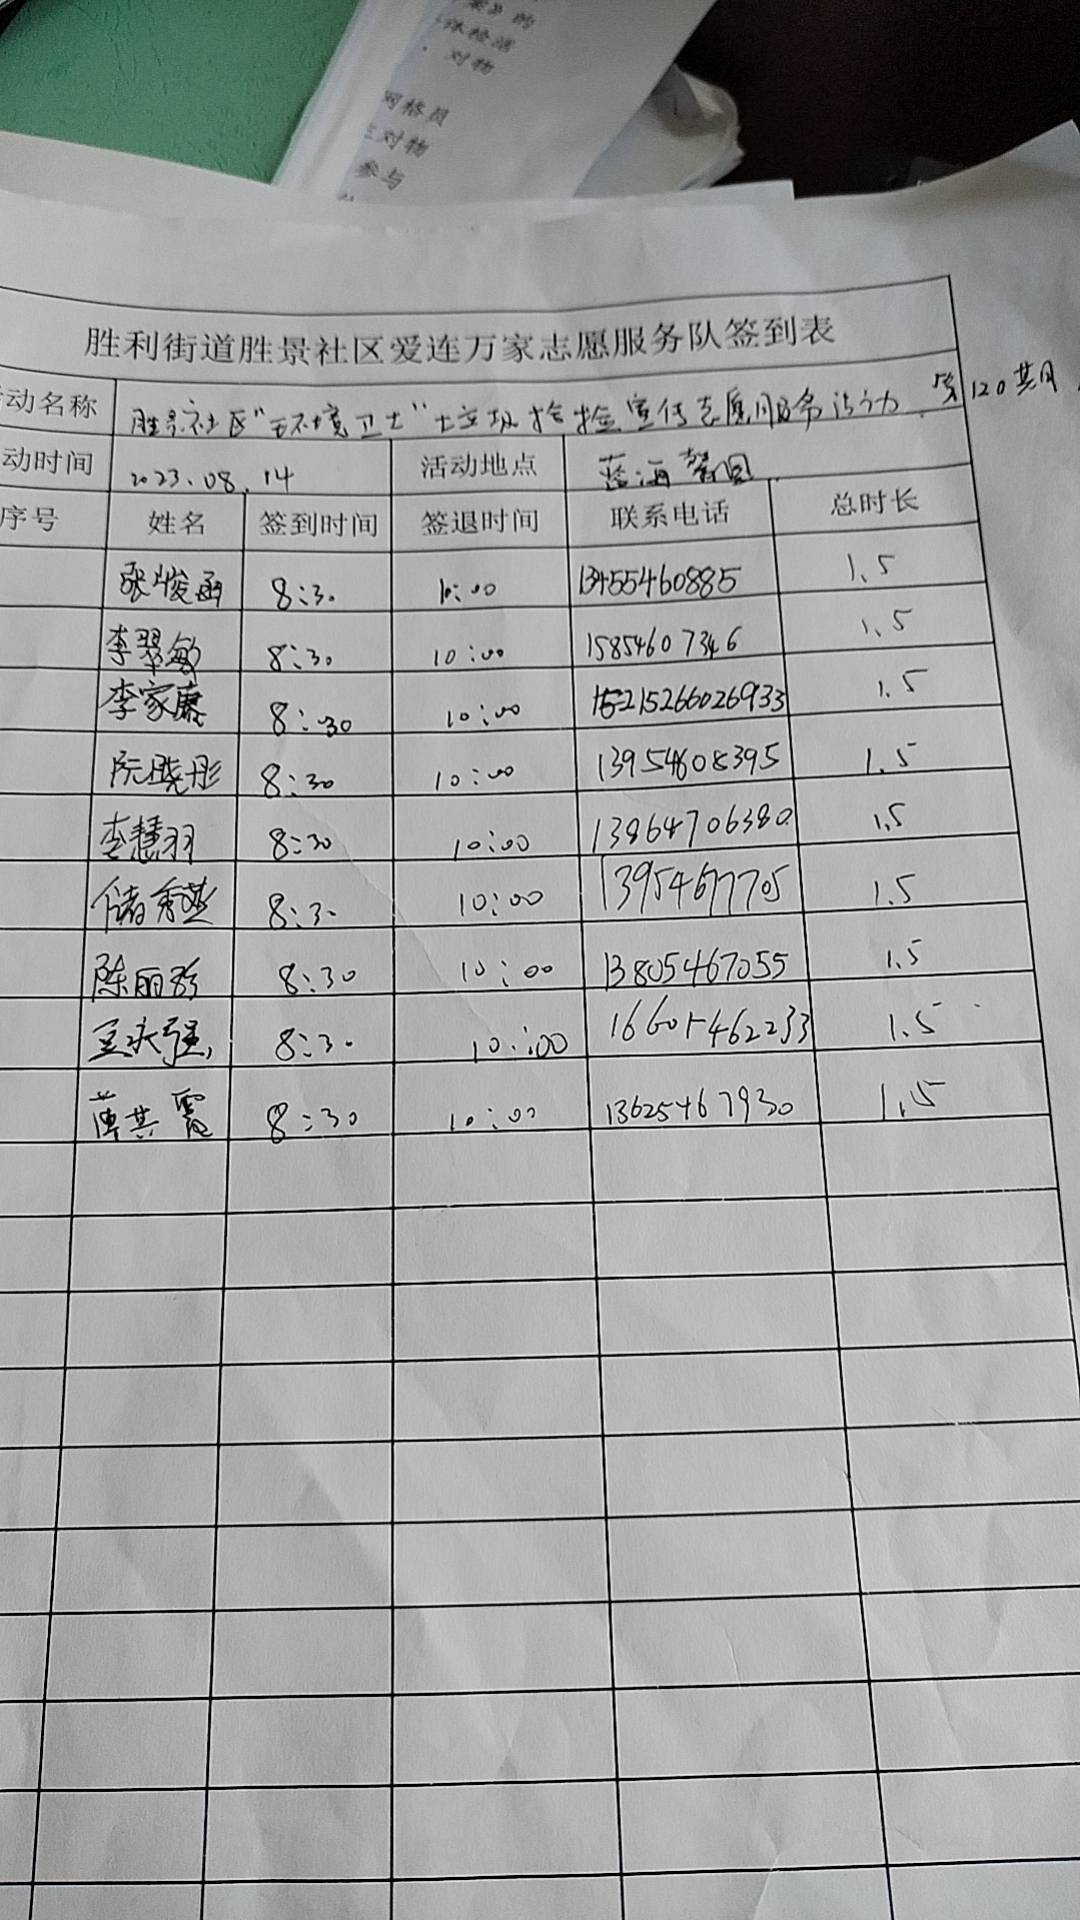 案》的
体检活
对物
网格员
主对物
参与
胜利街道胜景社区爱连万家志愿服务队签到表
动名称 胜景社区"环境卫士"垃圾捡捡宣传志愿服务活动.第120共月
动时间 2023.08.14 活动地点 蓝海馨园
序号 姓名 签到时间 签退时间 联系电话 总时长
张峻函 8:30 10:00 13455460885 1.5
李翠敏 8:30 10:00 15854607346 1.5
李家康 8:30 10:00 15266026933 1.5
阮晓彤 8:30 10:00 13954608395 1.5
李慧羽 8:30 10:00 13864706380 1.5
储秀燕 8:30 10:00 13954677705 1.5
陈丽珍 8:30 10:00 13805467055 1.5
强 8:30 10:00 16601462233 1.5
薄其霞 8:30 10:00 13625467930 1.5